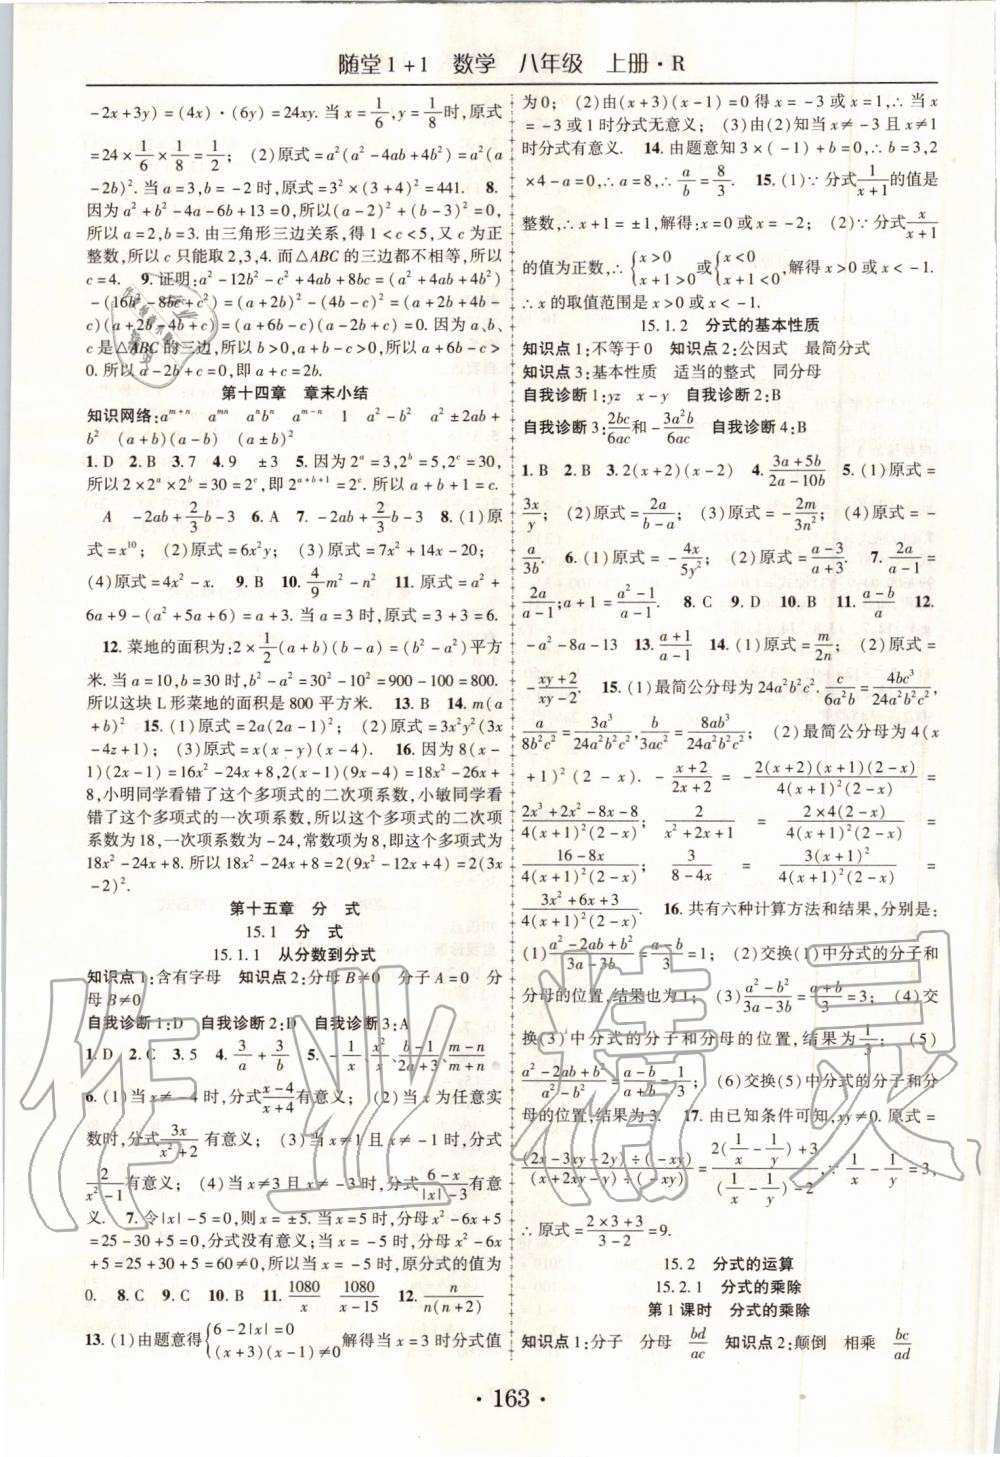 随堂1+1 数学 八年级 上册·R
-2x+3y)=(4x)·(6y)=24xy.当x=1/6,y=1/8时,原式
=24×1/6×1/8=1/2; (2)原式=a²(a²-4ab+4b²)=a²(a
-2b)².当a=3,b=-2时,原式=3²×(3+4)²=441. 8.
因为a²+b²-4a-6b+13=0,所以(a-2)²+(b-3)²=0,
所以a=2,b=3.由三角形三边关系,得1<c<5,又c为正
整数,所以c只能取2,3,4.而△ABC的三边都不相等,所以
c=4. 9.证明:a²-12b²-c²+4ab+8bc=(a²+4ab+4b²)
-(16b²-8bc+c²)=(a+2b)²-(4b-c)²=(a+2b+4b-
c)(a+2b-4b+c)=(a+6b-c)(a-2b+c)=0.因为a、b、
c是△ABC的三边,所以b>0,a+b-c>0,所以a+6b-c>
0.所以a-2b+c=0,即a+c=2b.
第十四章 章末小结
知识网络:aᵐ⁺ⁿ aᵐⁿ aⁿbⁿ aᵐ⁻ⁿ 1 a²-b² a²±2ab+
b² (a+b)(a-b) (a±b)²
1.D 2.B 3.7 4.9 ±3 5.因为2ᵃ=3,2ᵇ=5,2ᶜ=30,
所以2×2ᵃ×2ᵇ=30=2ᶜ,即2ᵃ⁺ᵇ⁺¹=2ᶜ.所以a+b+1=c.
A -2ab+2/3b-3 6.A 7.-2ab+2/3b-3 8.(1)原
式=x¹⁰; (2)原式=6x²y; (3)原式=7x²+14x-20;
(4)原式=4x²-x. 9.B 10.4/9m²+4 11.原式=a²+
6a+9-(a²+5a+6)=a+3.当a=3时,原式=3+3=6.
12.菜地的面积为:2×1/2(a+b)(b-a)=(b²-a²)平方
米.当a=10,b=30时,b²-a²=30²-10²=900-100=800.
所以这块L形菜地的面积是800平方米. 13.B 14.m(a
+b)² 15.(1)原式=2a(2a-1)²; (2)原式=3x²y²(3x
-4z+1); (3)原式=x(x-y)(x-4). 16.因为8(x-
1)(2x-1)=16x²-24x+8,2(x-1)(9x-4)=18x²-26x+
8,小明同学看错了这个多项式的二次项系数,小敏同学看
错了这个多项式的一次项系数,所以这个多项式的二次项
系数为18,一次项系数为-24,常数项为8,即这个多项式为
18x²-24x+8.所以18x²-24x+8=2(9x²-12x+4)=2(3x
-2)².
第十五章 分 式
15.1 分 式
15.1.1 从分数到分式
知识点1:含有字母 知识点2:分母B≠0 分子A=0 分
母B≠0
自我诊断1:D 自我诊断2:D 自我诊断3:A
1.D 2.C 3.5 4.3/a+3/b 5.-1/x、x²/x、(b-1)/(2a+3)、(m-n)/(m+n)
6.(1)当x≠-4时,分式(x-4)/(x+4)有意义; (2)当x为任意实
数时,分式3x/(x²+2)有意义; (3)当x≠1且x≠-1时,分式
2/(x²-1)有意义; (4)当x≠3且x≠-3时,分式(6-x)/(|x|-3)有意
义. 7.令|x|-5=0,则x=±5.当x=5时,分母x²-6x+5
=25-30+5=0,分式没有意义;当x=-5时,分母x²-6x
+5=25+30+5=60≠0,所以当x=-5时,原分式的值为
0. 8.C 9.C 10.B 11.1080/x 1080/(x-15) 12.n/(n(n+2))
13.(1)由题意得{6-2|x|=0 (x+3)(x-1)≠0 解得当x=3时分式值
为0; (2)由(x+3)(x-1)=0得x=-3或x=1,∴当x
=-3或1时分式无意义; (3)由(2)知当x≠-3且x≠1
时分式有意义. 14.由题意知3×(-1)+b=0,∴b=3,2
×4-a=0,∴a=8,∴a/b=8/3. 15.(1)∵分式1/(x+1)的值是
整数,∴x+1=±1,解得:x=0或x=-2; (2)∵分式x/(x+1)
的值为正数,∴{x>0 x+1>0或{x<0 x+1<0,解得x>0或x<-1.
∴x的取值范围是x>0或x<-1.
15.1.2 分式的基本性质
知识点1:不等于0 知识点2:公因式 最简分式
知识点3:基本性质 适当的整式 同分母
自我诊断1:yz x-y 自我诊断2:B
自我诊断3:2bc/6ac和-3a²b/6ac 自我诊断4:B
1.B 2.B 3.2(x+2)(x-2) 4.(3a+5b)/(2a-10b) 5.(1)原式=
3x/y; (2)原式=2a/(b-a); (3)原式=-2m/3n²; (4)原式=-
a/3b. 6.(1)原式=-4x/5y²; (2)原式=(a-3)/(a+3). 7.2a/(a-1)=
2a/(a-1);a+1=(a²-1)/(a-1). 8.C 9.D 10.B 11.(a-b)/a 12.
-a²-8a-13 13.(a+1)/(a-1) 14.(1)原式=m/2n; (2)原式=
-(xy+2)/(xy-2). 15.(1)最简公分母为24a²b²c².c/6a²b=4bc³/24a²b²c²,
a/8b²c²=3a³/24a²b²c²,b/3ac²=8ab³/24a²b²c²; (2)最简公分母为4(x
+1)²(2-x). -(x+2)/(2x+2)=-2(x+2)(x+1)(2-x)/4(x+1)²(2-x)=
(2x³+2x²-8x-8)/4(x+1)²(2-x); 2/(x²+2x+1)=2×4(2-x)/4(x+1)²(2-x)=
(16-8x)/4(x+1)²(2-x); 3/(8-4x)=3(x+1)²/4(x+1)²(2-x)=
(3x²+6x+3)/4(x+1)²(2-x). 16.共有六种计算方法和结果,分别是:
(1)(a²-2ab+b²)/(3a-3b)=(a-b)/3=1; (2)交换(1)中分式的分子和
分母的位置,结果也为1; (3)(a²-b²)/(3a-3b)=(a+b)/3=3; (4)交
换(3)中分式的分子和分母的位置,结果为1/3; (5)
(a²-2ab+b²)/(a²-b²)=(a-b)/(a+b)=1/3; (6)交换(5)中分式的分子和分
母的位置,结果为3. 17.由已知条件可知,xy≠0.原式=
(2x-3xy-2y)÷(-xy)/(x+2xy-y)÷(-xy)=(2(1/x-1/y)+3)/(1/x-1/y-2),∵1/x-1/y=3,
∴原式=(2×3+3)/(3-2)=9.
15.2 分式的运算
15.2.1 分式的乘除
第1课时 分式的乘除
知识点1:分子 分母 bd/ac 知识点2:颠倒 相乘 bc/ad
·163·
作业精灵